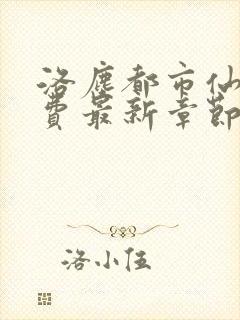 洛塵都市仙
費最新章節
洛小伍